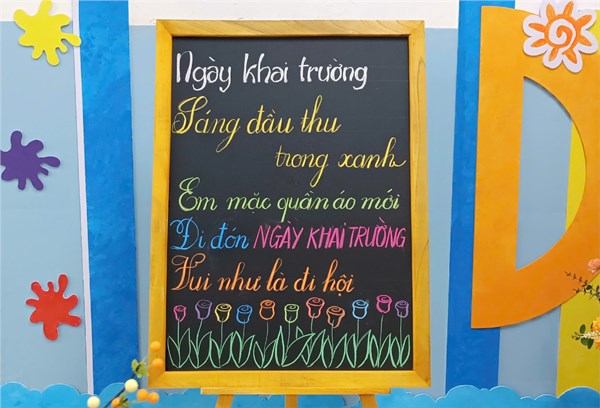 Ngày khai trường
Sáng đầu thu
trong xanh
Em mặc quần áo mới
Đi đón NGÀY KHAI TRƯỜNG
Vui như là đi hội